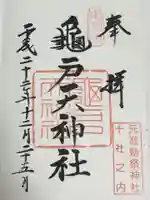 奉拝
元准勅祭神社
十社之内
龜戸天神社
平成二十二年十二月二十五日